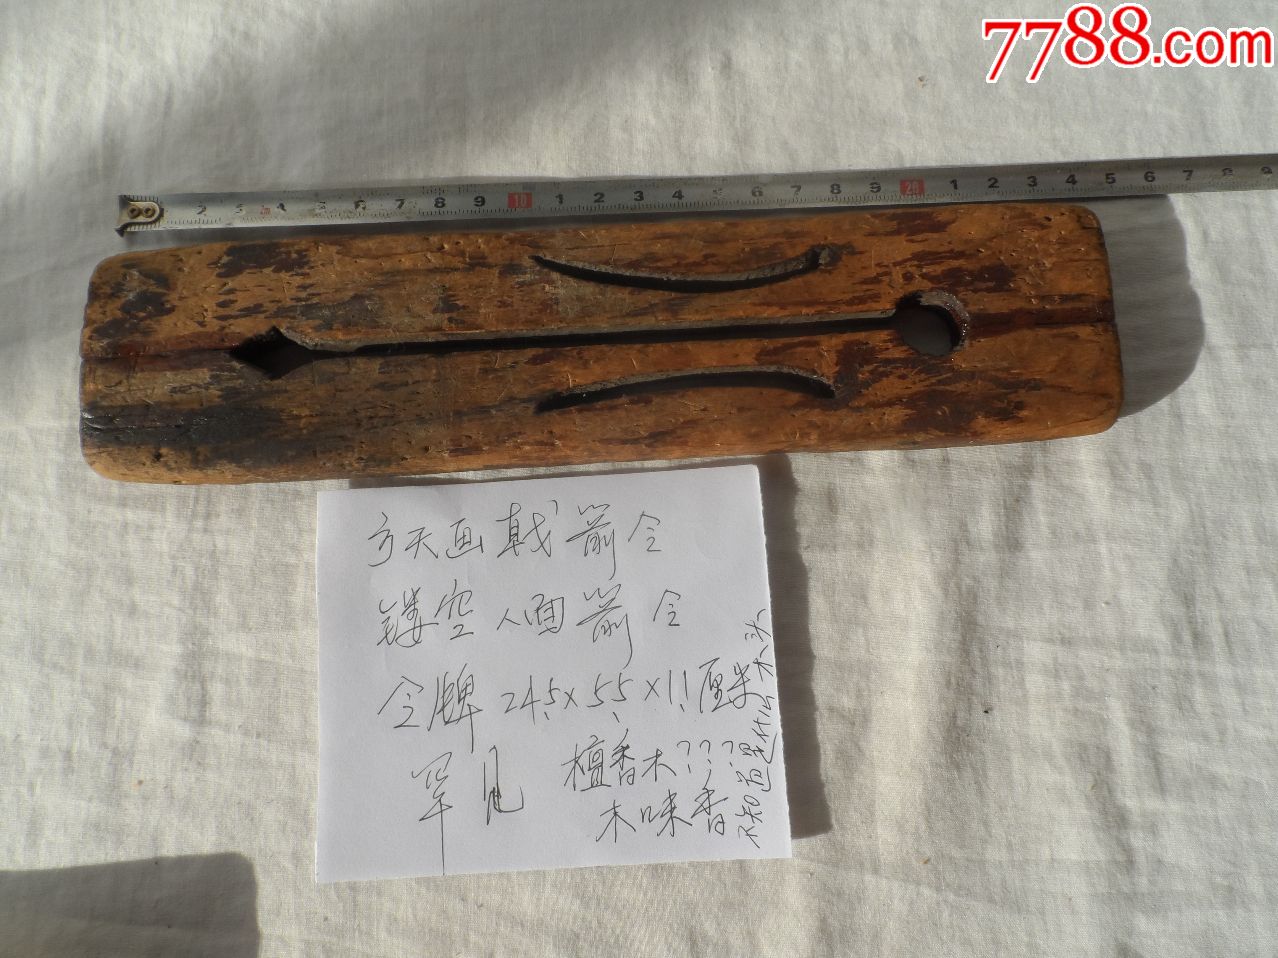 7788.com
2 3 2m 4 5 6 7 8 9 10 1 2 3 4 5 6 7 8 9 20 1 2 3 4 5 6 7 8 9
方天画戟箭令
镂空人面箭令
令牌 24.5×5.5×1.1厘米
罕见 檀香木???
木味香
不知道是什么木头